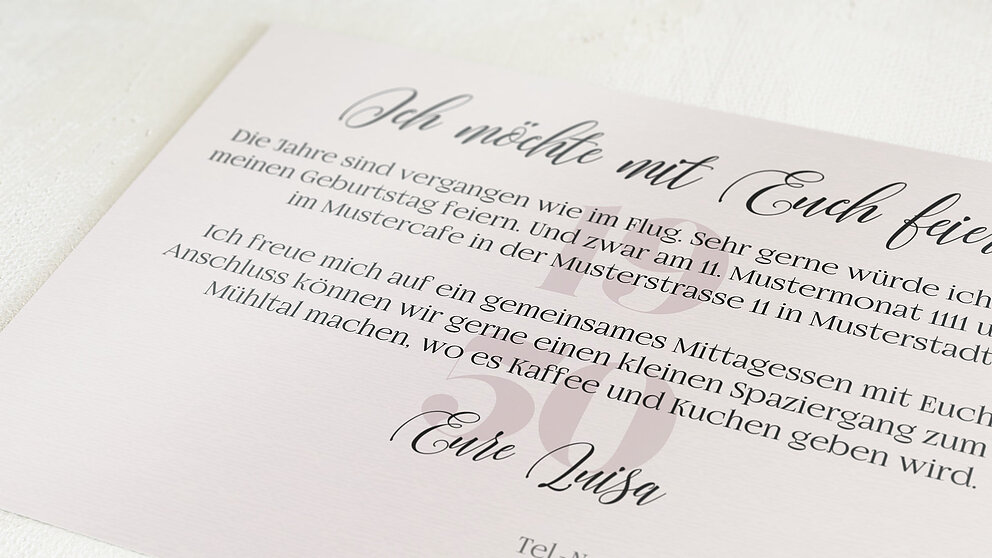 Ich möchte mit Euch feier
Die Jahre sind vergangen wie im Flug. Sehr gerne würde ich
meinen Geburtstag feiern. Und zwar am 11. Mustermonat 1111 u
im Mustercafe in der Musterstrasse 11 in Musterstadt
Ich freue mich auf ein gemeinsames Mittagessen mit Euch
Anschluss können wir gerne einen kleinen Spaziergang zum
Mühltal machen, wo es Kaffee und Kuchen geben wird.
19
50
Eure Luisa
Tel.-N